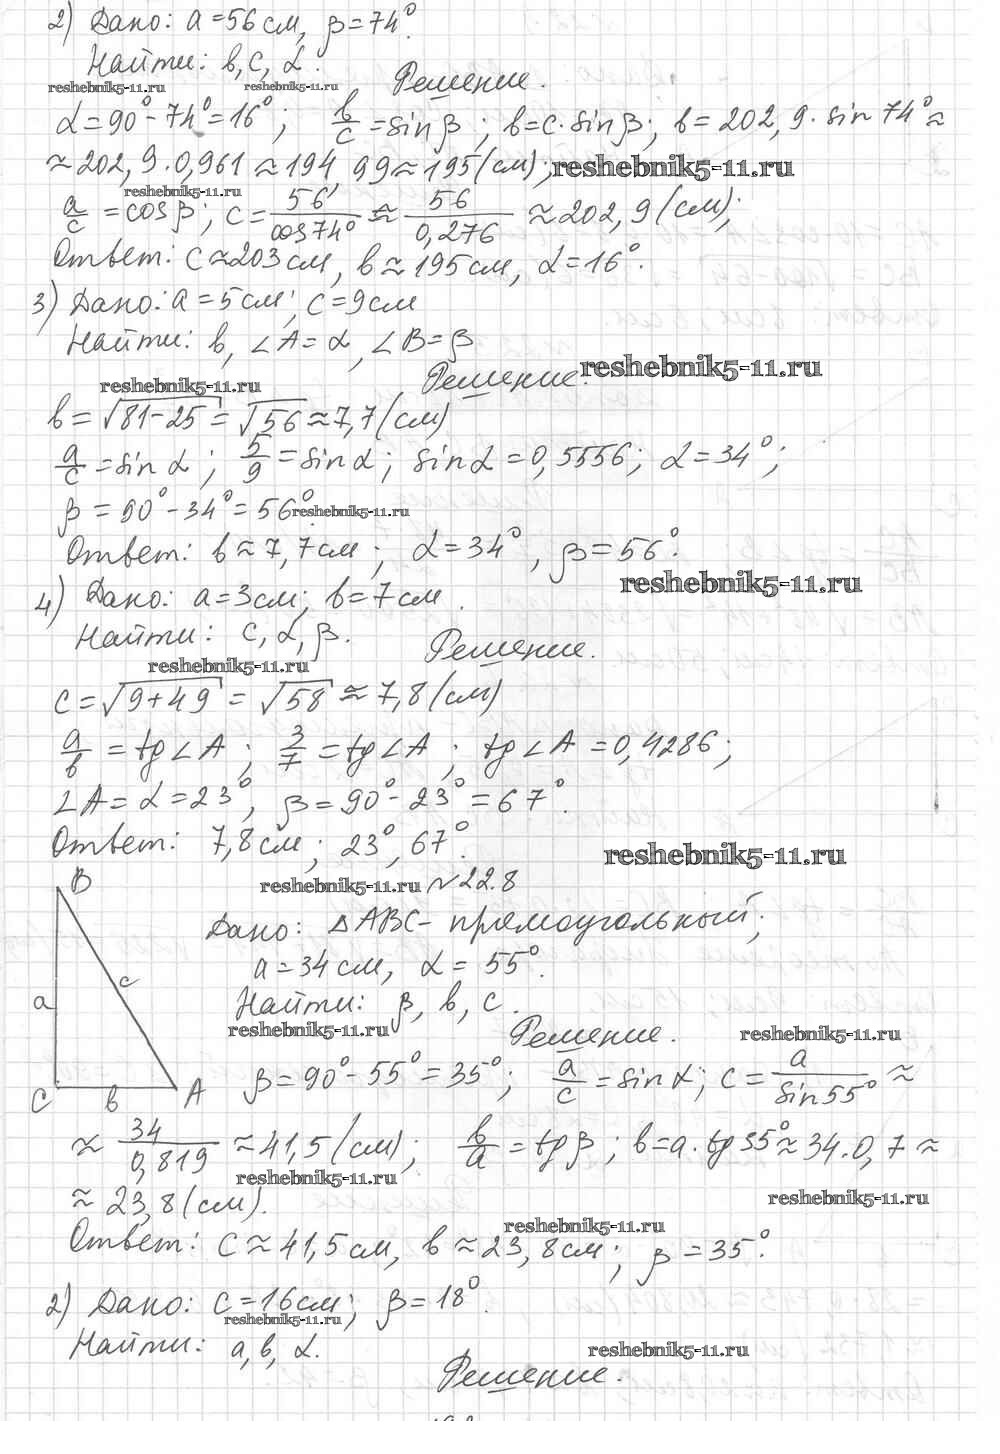 2) Дано: a=56 см, β=74°.
Найти: в, с, α.
reshebnik5-11.ru reshebnik5-11.ru
Решение.
α=90°-74°=16°; в/с=sinβ; в=с·sinβ; в=202,9·sin74°≈
≈202,9·0,961≈194,99≈195(см); reshebnik5-11.ru
reshebnik5-11.ru
a/c=cosβ; c=56/cos74°≈56/0,276≈202,9(см);
Ответ: с≈203см, в≈195см, α=16°.
3) Дано: a=5см; с=9см
Найти: в, ∠A=α, ∠B=β
reshebnik5-11.ru Решение. reshebnik5-11.ru
в=√81-25=√56≈7,7(см)
a/c=sinα; 5/9=sinα; sinα=0,5556; α=34°;
β=90°-34°=56°. reshebnik5-11.ru
Ответ: в≈7,7см; α=34°, β=56°.
reshebnik5-11.ru
4) Дано: a=3см; в=7см.
Найти: с, α, β.
reshebnik5-11.ru Решение.
с=√9+49=√58≈7,8(см)
a/в=tg∠A; 3/7=tg∠A; tg∠A=0,4286;
∠A=α=23°, β=90°-23°=67°.
Ответ: 7,8см; 23°, 67°.
reshebnik5-11.ru
reshebnik5-11.ru №22.8
B
Дано: △ABC- прямоугольный;
a=34см, α=55°.
a c
Найти: β, в, с.
reshebnik5-11.ru Решение. reshebnik5-11.ru
C в A
β=90°-55°=35°; a/c=sinα; c=a/sin55°≈
≈34/0,819≈41,5(см); в/a=tgβ; в=a·tg35°≈34·0,7≈
reshebnik5-11.ru
≈23,8(см). reshebnik5-11.ru
reshebnik5-11.ru
Ответ: с≈41,5см, в≈23,8см; β=35°.
2) Дано: с=16см; β=18°.
reshebnik5-11.ru
Найти: a, в, α. reshebnik5-11.ru
Решение.